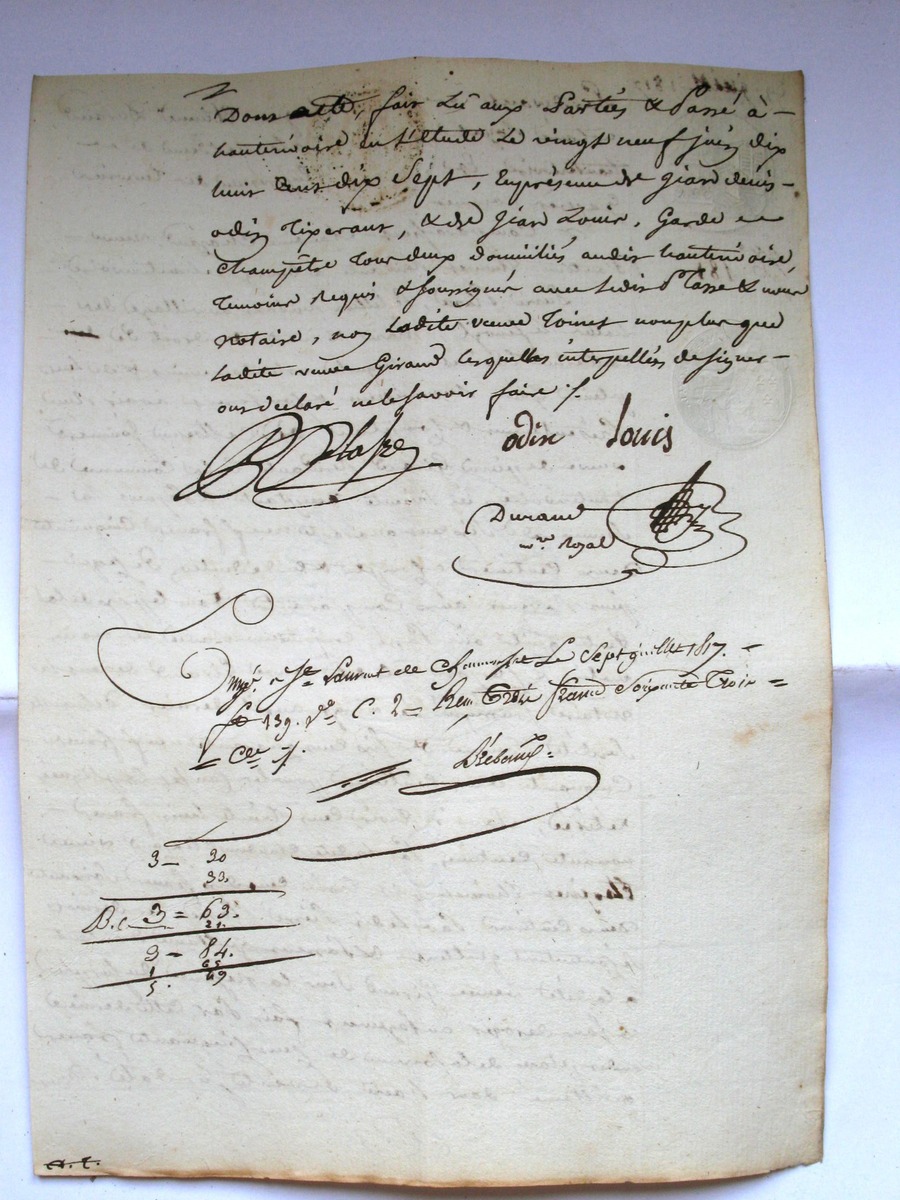 Dont acte, fait Lû aux Parties & Passé à –
hauterivoire en l'étude Le vingt neuf juin dix
huit Cent dix Sept, En présence de jean denis –
odin Tixerant, & de jean Louis, Garde
Champêtre Tous deux domiciliés audit hauterivoire,
Temoins Requis & soussignés avec Ledit & nous
Notaire, non Ladite veuve nonplus que
Ladite veuve Giraud Lesquelles interpellées de signer –
ont déclaré ne le savoir faire /.
odin Louis
Durand
nre Royal
St Laurent de Chamousset Le Sept juillet 1817. –
f° 139. Vo C. 2 = Reçu Trois francs Soixante Trois =
= Cme /.
3 – 30
33.
3 = 63.
21.
3 – 84.
1 65
5. 49